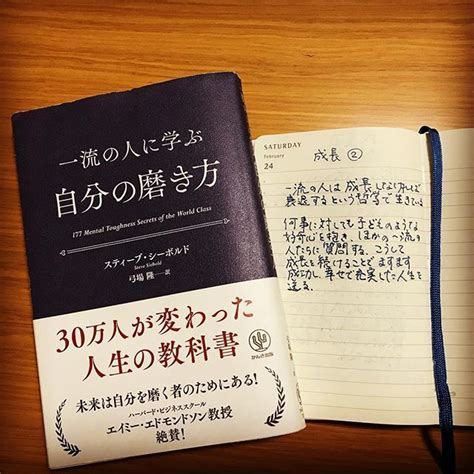 一流の人に学ぶ
自分の磨き方
177 Mental Toughness Secrets of the World Class
スティーブ・シーボルド
Steve Siebold
弓場 隆=訳
30万人が変わった
人生の教科書
かんき出版
未来は自分を磨く者のためにある!
ハーバード・ビジネススクール
エイミー・エドモンドソン教授
絶賛!
SATURDAY
February
24
成長 ②
一流の人は成長しなければ
衰退するという哲学で生きている
何事に対しても子どものような
好奇心を抱き、ほかの一流の
人たちに質問する。こうして
成長を続けることでますます
成功し、幸せで充実した人生を
送る。